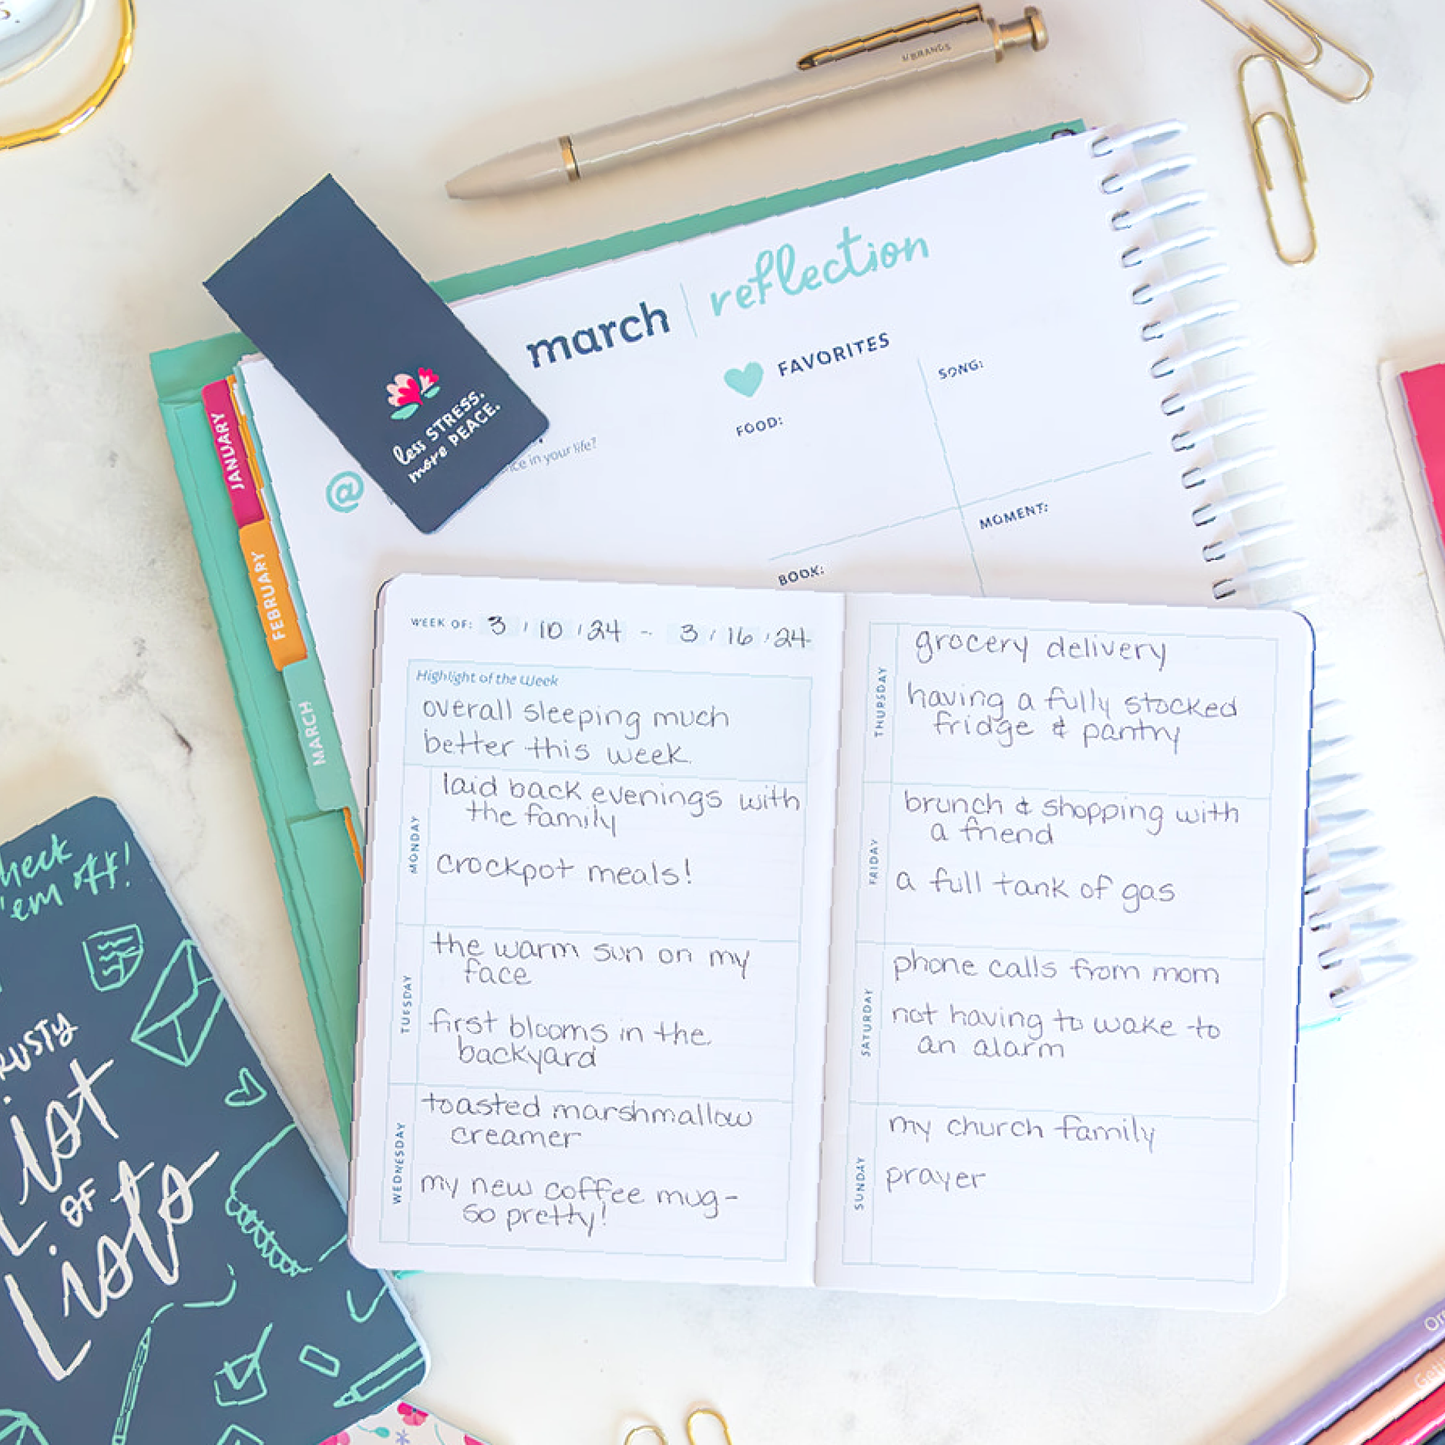 BRANDS
march | reflection
FAVORITES
FOOD:
SONG:
BOOK:
MOMENT:
in your life?
@
less STRESS.
more PEACE.
JANUARY
FEBRUARY
MARCH
WEEK OF: 3 / 10 / 24 - 3 / 16 / 24
Highlight of the Week
overall sleeping much
better this week.
MONDAY
laid back evenings with
the family
crockpot meals!
TUESDAY
the warm sun on my
face
first blooms in the
backyard
WEDNESDAY
toasted marshmallow
creamer
my new coffee mug-
so pretty!
THURSDAY
grocery delivery
having a fully stocked
fridge & pantry
FRIDAY
brunch & shopping with
a friend
a full tank of gas
SATURDAY
phone calls from mom
not having to wake to
an alarm
SUNDAY
my church family
prayer
'em off!
List
OF
Lists